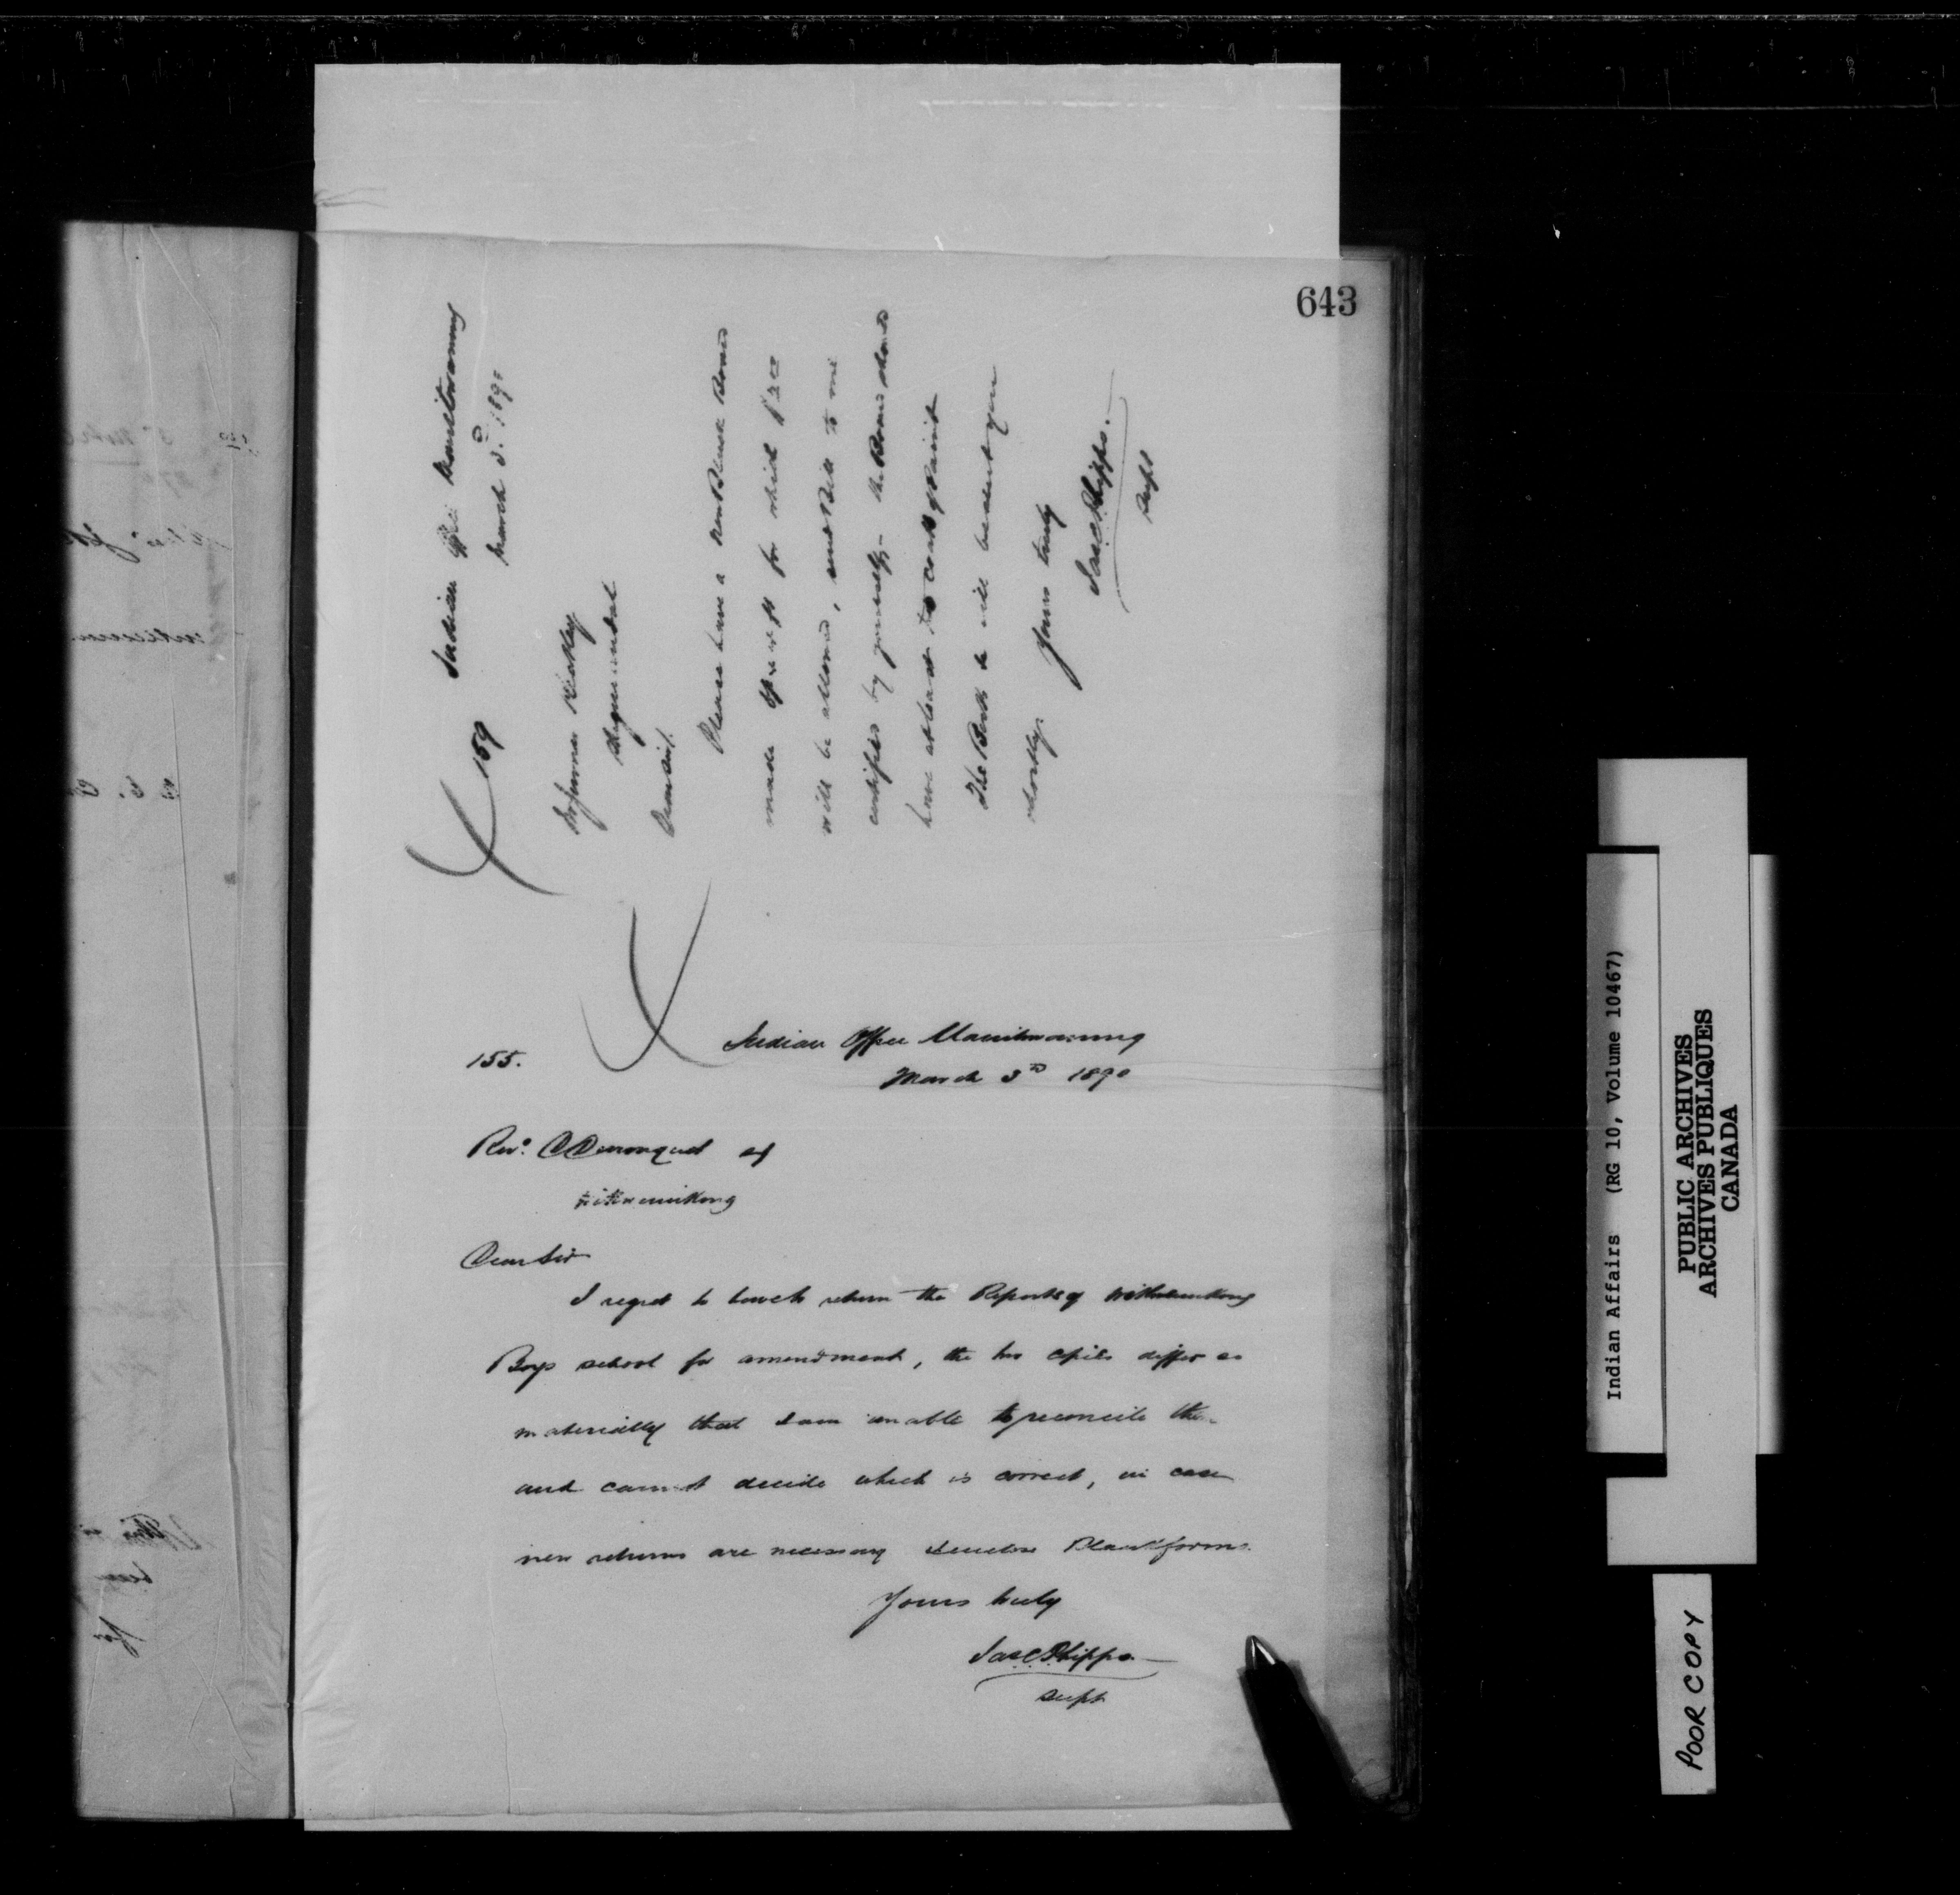 643
159
Indian Office Manitowaning
March 3rd 1890
Sheguiandah
Dear Sir/
Please have a new Black Board
made 4 ft for which $2.00
will be allowed, send Bill to me
certified by yourself - the Board should
have at least two coats of paint
The Books &c will be sent you
shortly. Yours truly
Jas C Phipps.
Supt
155.
Indian Office Manitowaning
March 3rd 1890
Revd. sj
Wikwemikong
Dear Sir
I regret to have to return the Reports of Wikwemikong
Boys school for amendment, the two copies differ so
materially that I am unable to reconcile them
and cannot decide which is correct, in case
new returns are necessary I enclose Blank forms.
Yours truly
Jas C Phipps.
Supt
Indian Affairs (RG 10, Volume 10467)
PUBLIC ARCHIVES
ARCHIVES PUBLIQUES
CANADA
POOR COPY